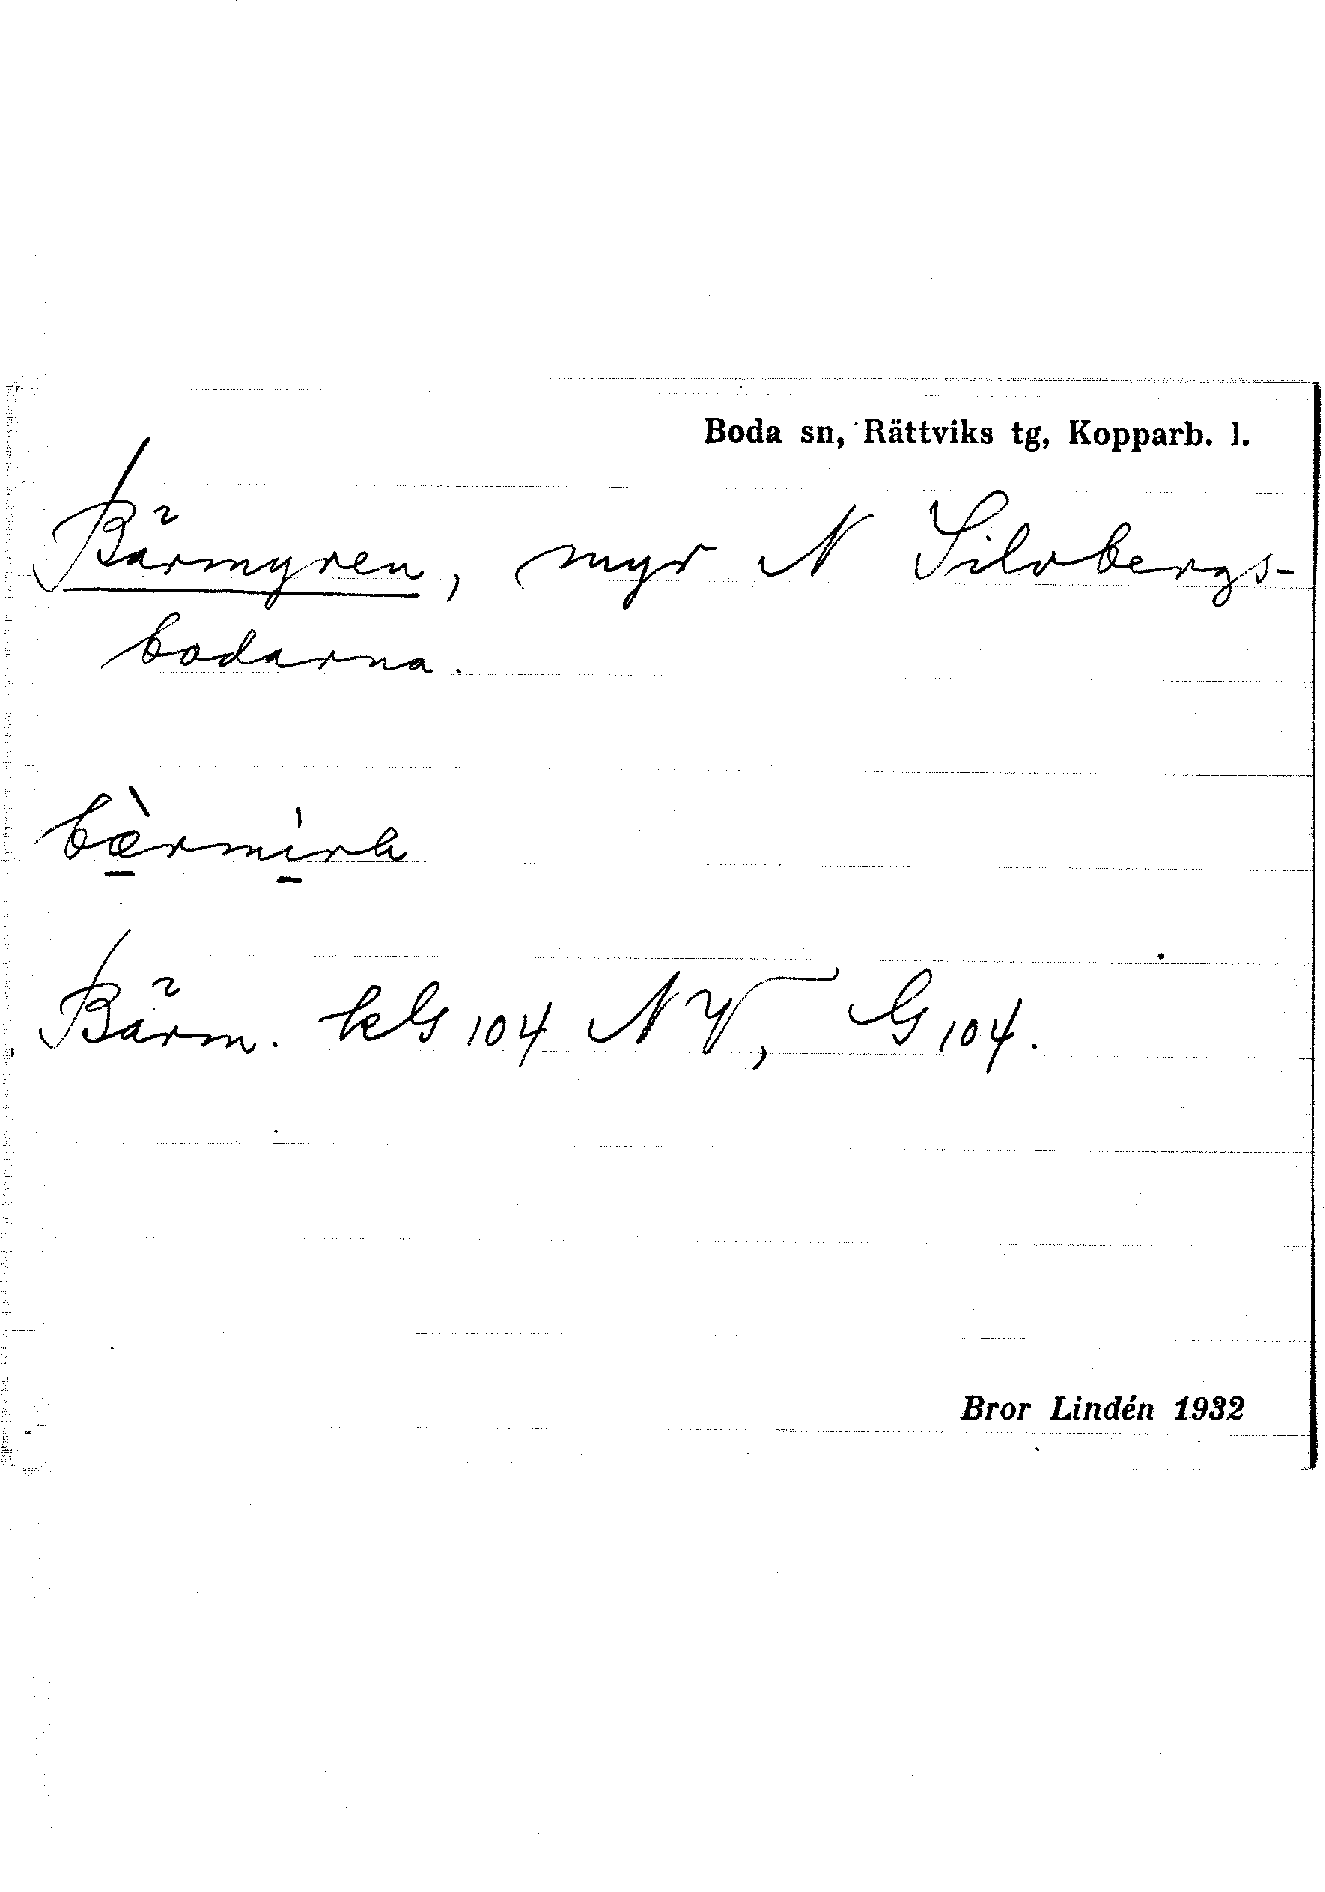 Boda sn, Rättviks tg, Kopparb. l.
Bärmyren, myr N Silvbergs-
bodarna.
Bärm. kG 104 NV, G 104.
Bror Lindén 1932